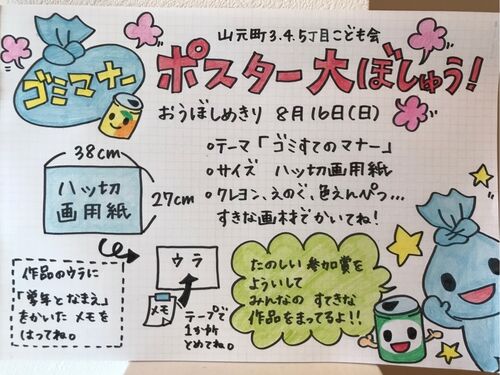 山元町3.4.5丁目こども会
ゴミマナー
ポスター大ぼしゅう!
おうぼしめきり 8月16日(日)
○テーマ「ゴミすてのマナー」
○サイズ ハッ切画用紙
○クレヨン、えのぐ、色えんぴつ...
すきな画材でかいてね!
38cm
27cm
ハッ切
画用紙
作品のウラに
「学年となまえ」
をかいた メモを
はってね。
ウラ
メモ
テープで
1か所
とめてね。
たのしい 参加賞を
よういして
みんなの すてきな
作品をまってるよ!!